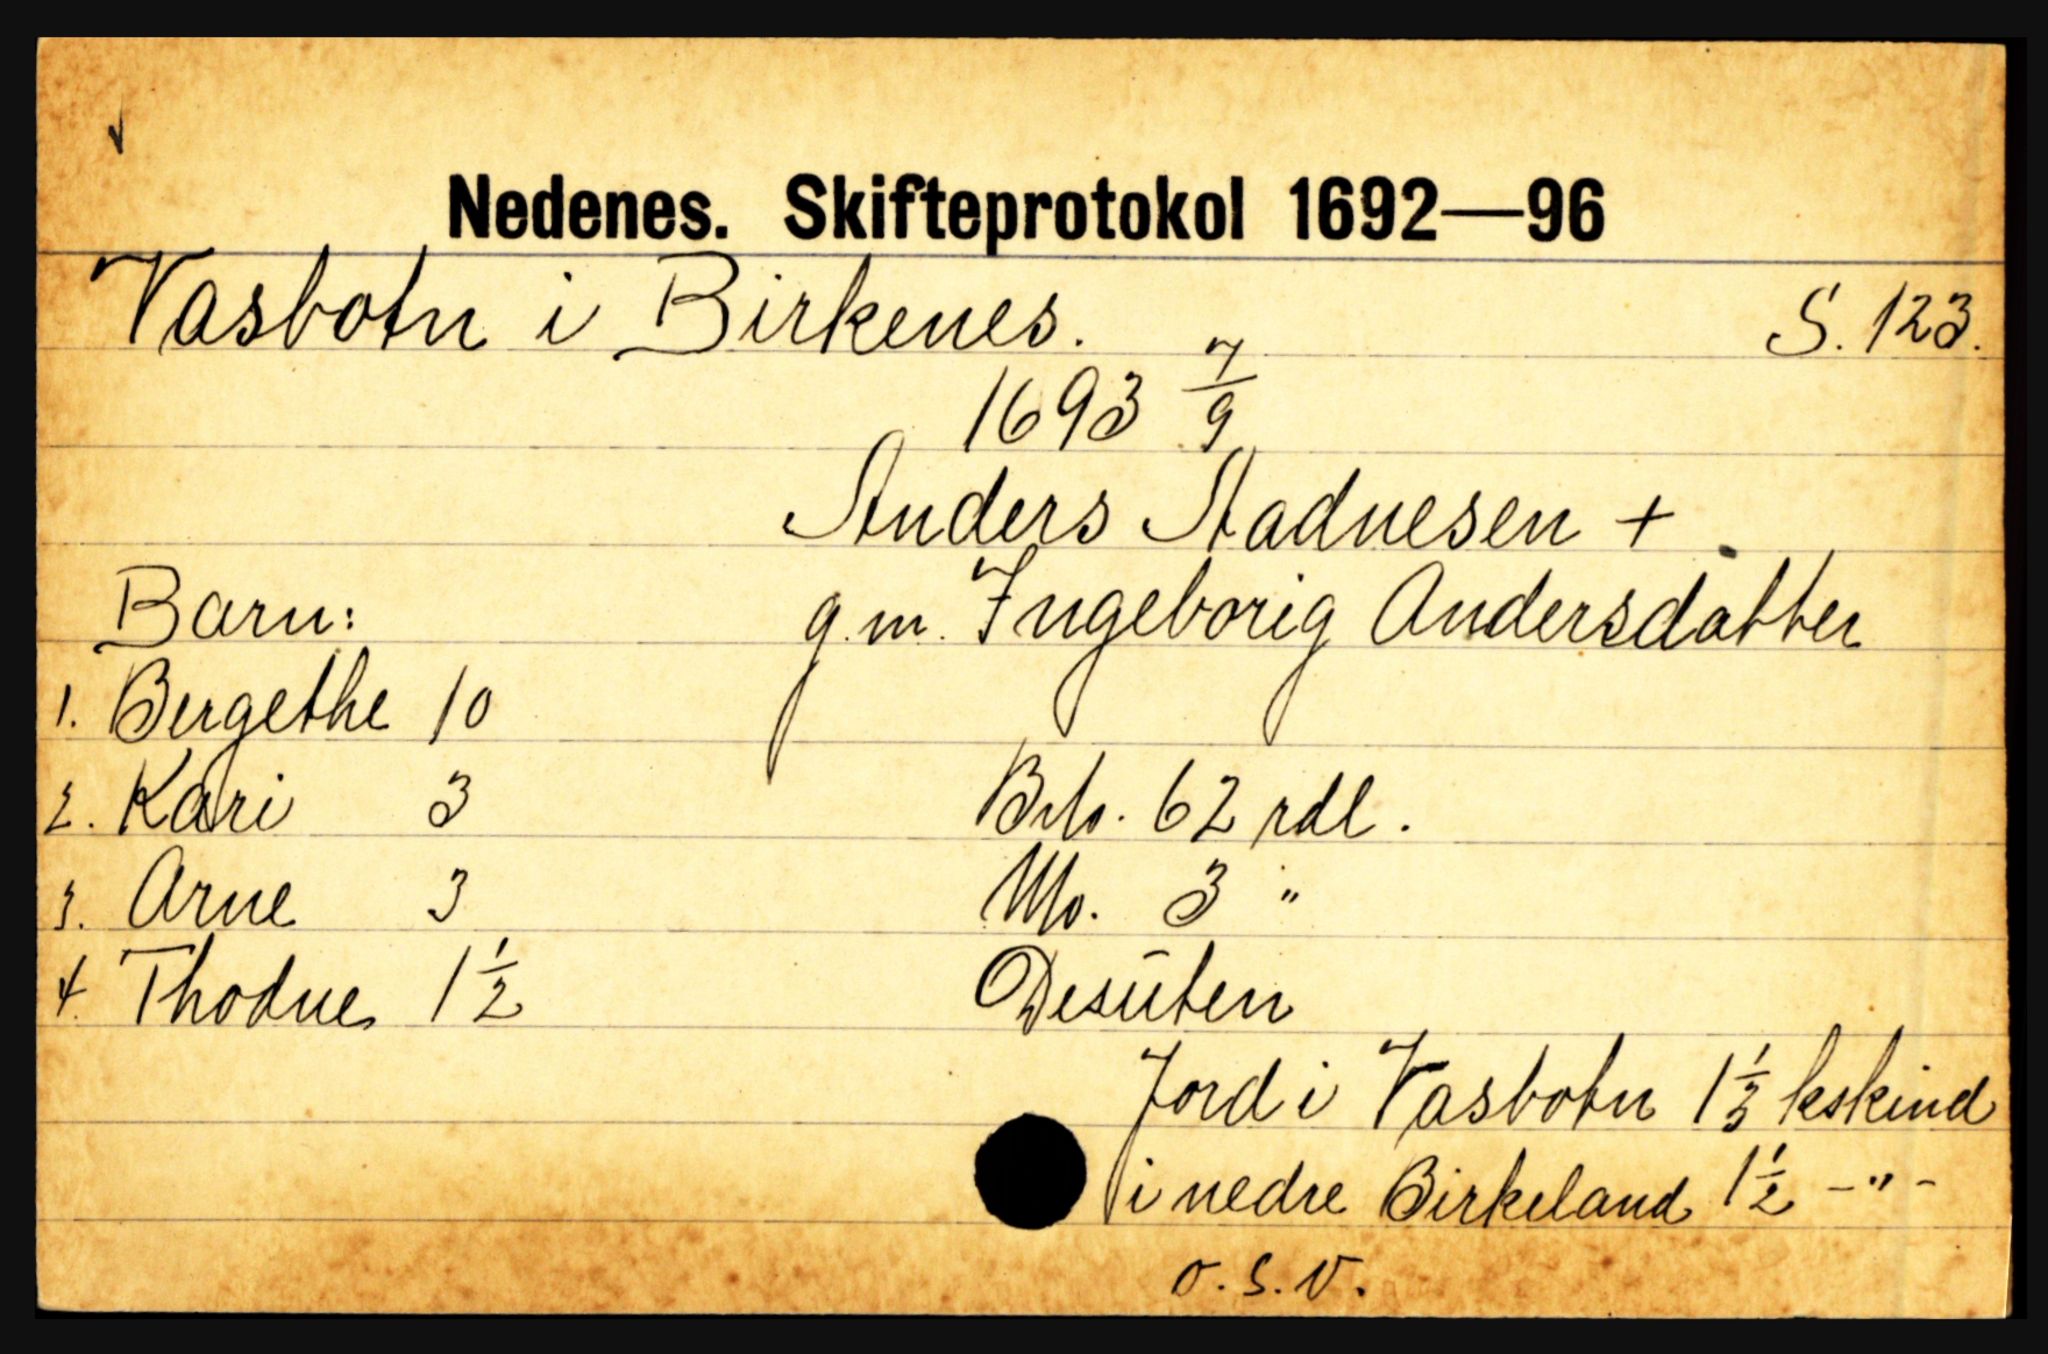 Nedenes. Skifteprotokol 1692—96
Vasbotn i Birkenes. S. 123.
1693 7/9
Anders Aadnesen +
Barn: g.m. Ingeborig Andersdatter
1. Bergethe 10
2. Kari 3 Bto. 62 rdl.
3. Arne 3 No. 3 "
4. Thodne 1 1/2 Desuten
Jord i Vasbotn 1 1/3 kskind
i nedre Birkeland 1 1/2 - " -
o.s.v.